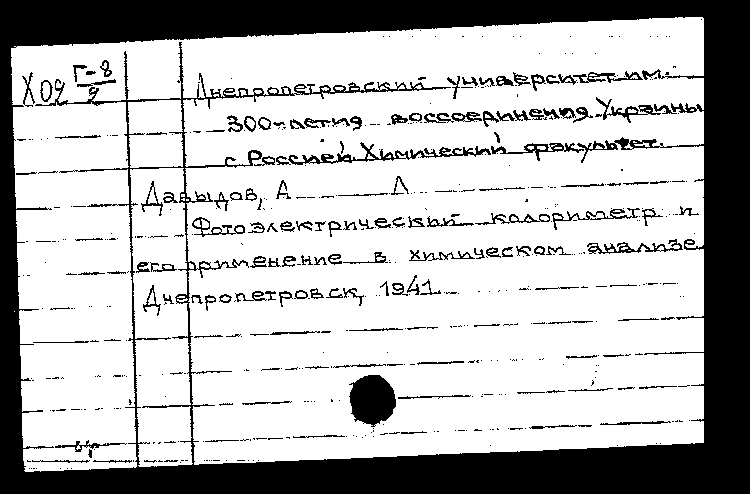 Х09 Г-8/9
Днепропетровский университет им.
300-летия воссоединения Украины
с Россией Химический факультет.
Давыдов, А Л
Фотоэлектрический калориметр и
его применение в химическом анализе
Днепропетровск, 1941